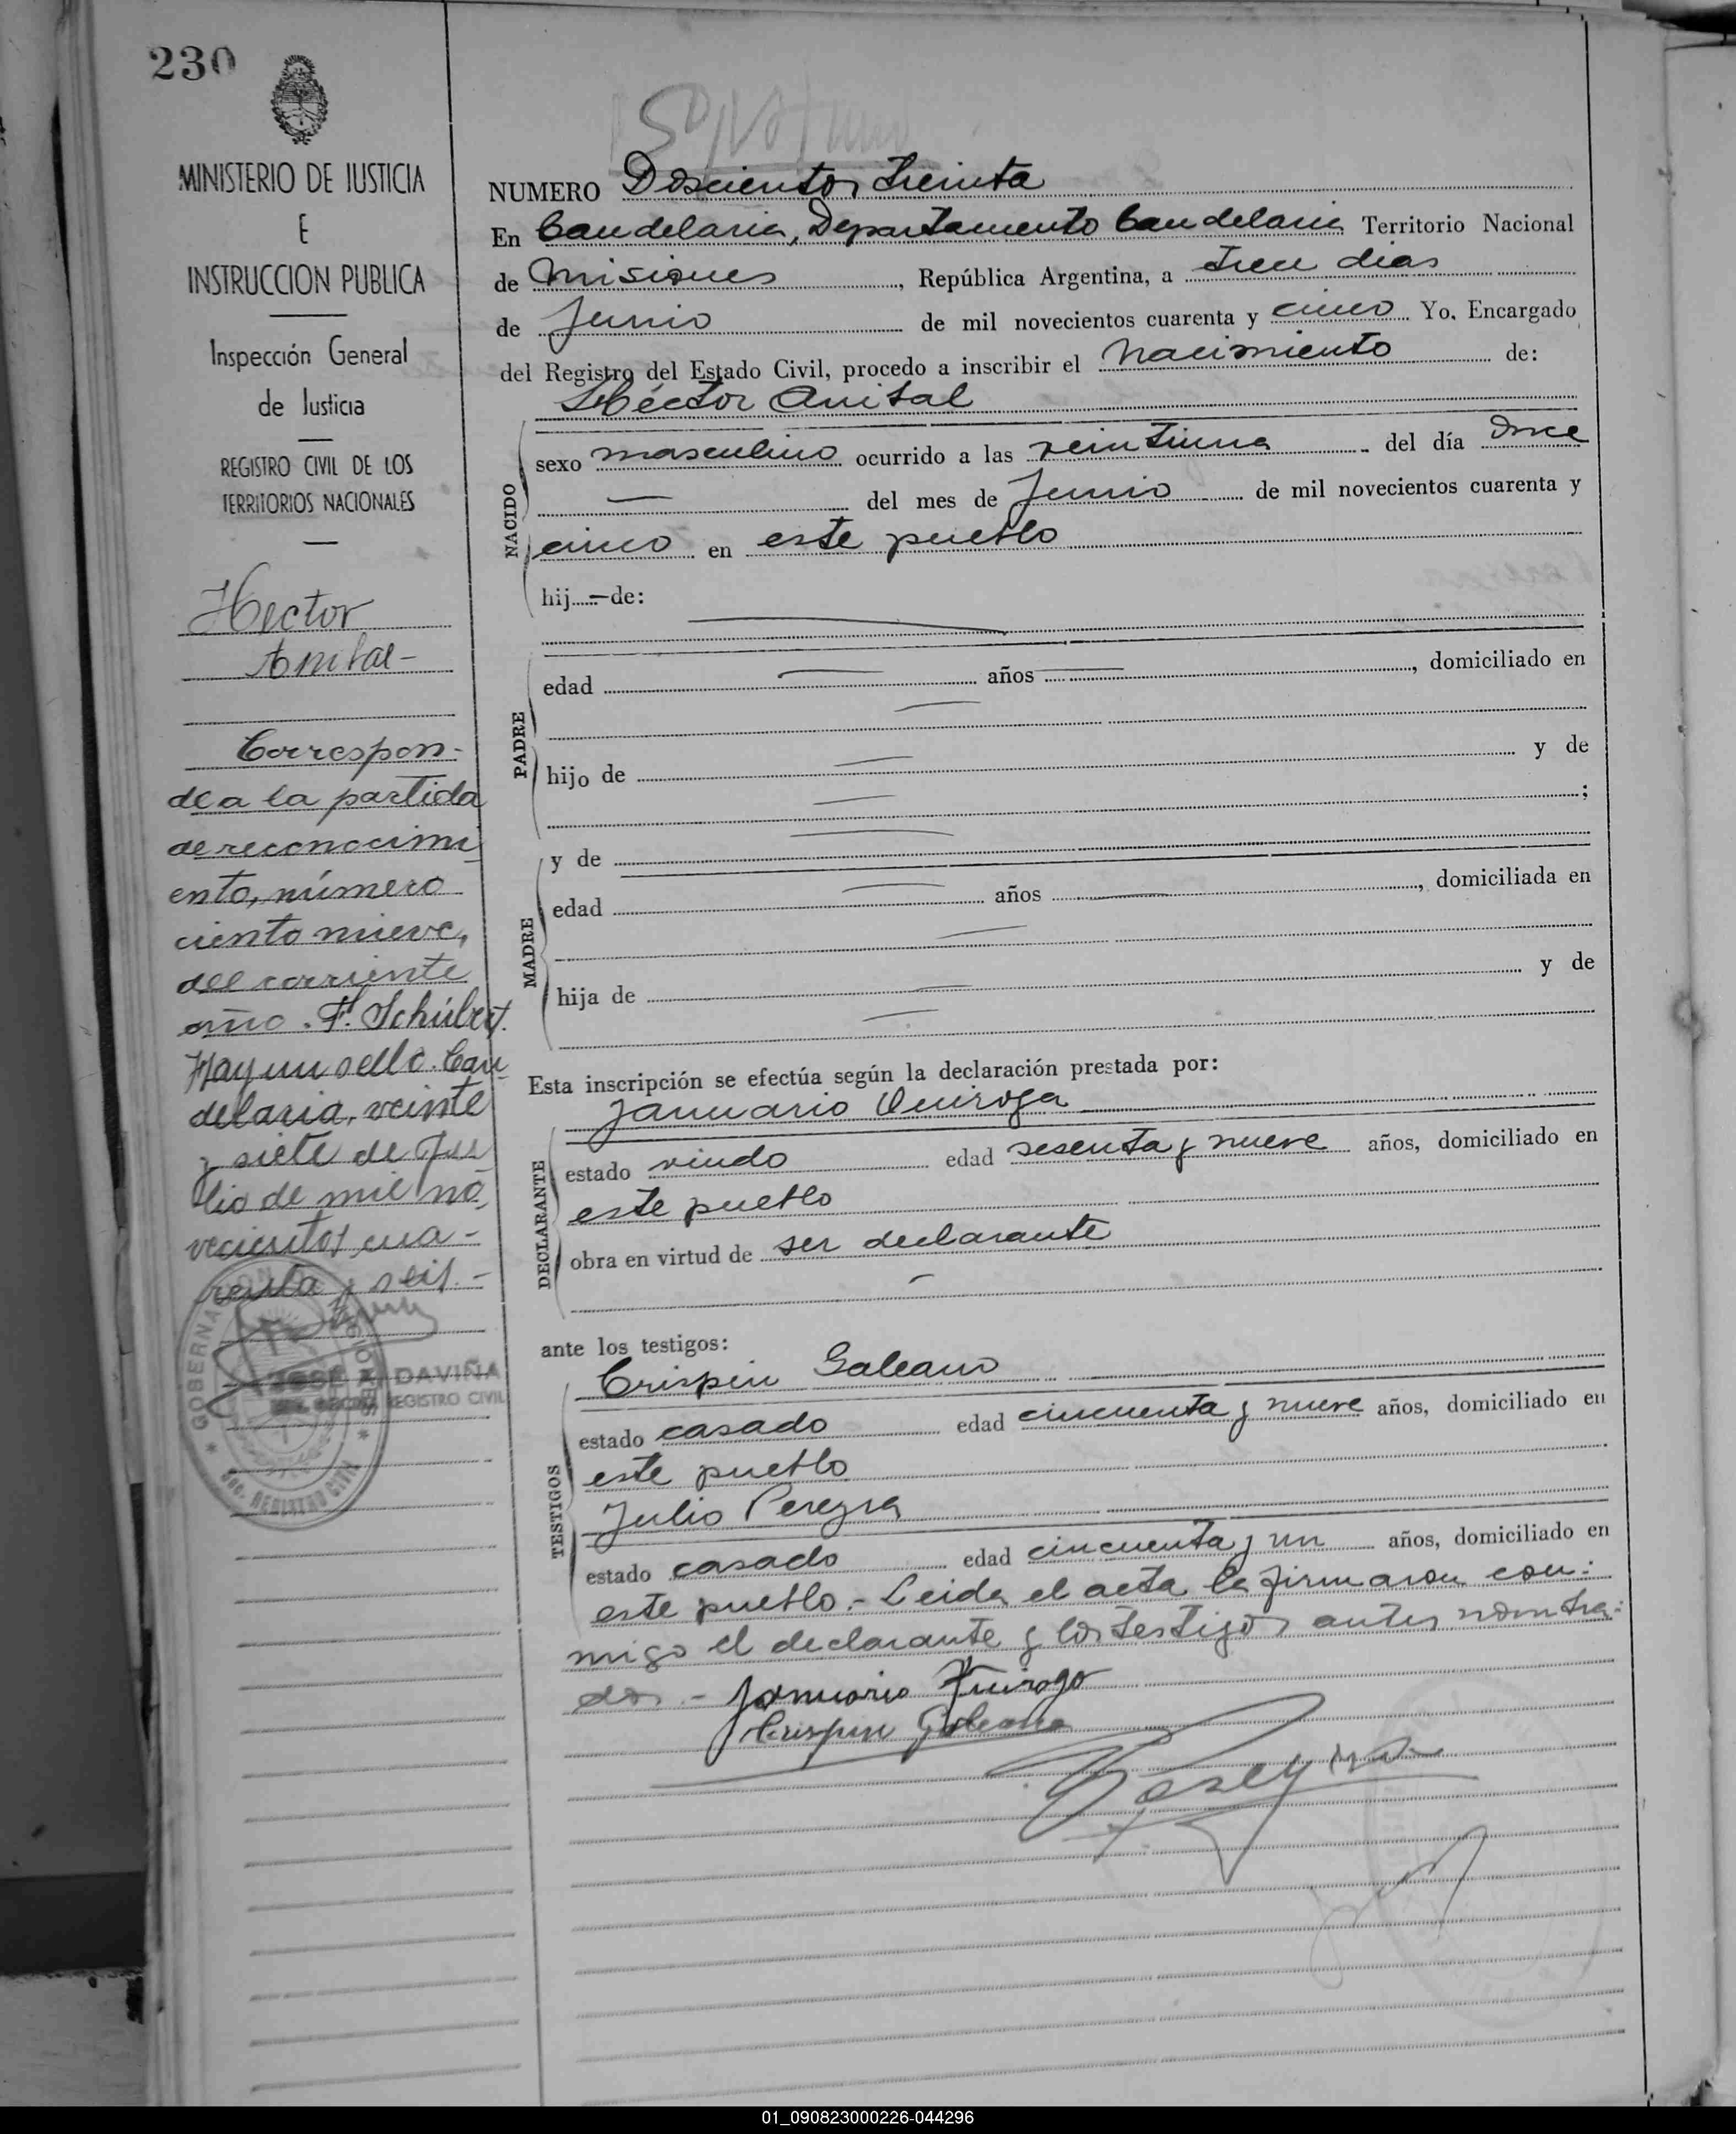 230
MINISTERIO DE JUSTICIA
E
INSTRUCCION PUBLICA
Inspección General
de Justicia
REGISTRO CIVIL DE LOS
TERRITORIOS NACIONALES
Hector
Anibal-
Correspon-
de a la partida
de reconocimi
ento, número
ciento nueve,
del corriente
año. F. Schúbert.
Hay un sello. Can
delaria, veinte
y siete de Ju
lio de mil no
vecientos cua-
renta y seis.-
GOBERNACION
JOSE A. DAVIÑA
REGISTRO CIVIL
Sec. REGISTRO CIVIL
NUMERO Doscientos treinta
En Candelaria, Departamento Candelaria Territorio Nacional
de Misiones, República Argentina, a trece días
de Junio de mil novecientos cuarenta y cinco Yo, Encargado
del Registro del Estado Civil, procedo a inscribir el nacimiento de:
Héctor Anibal
NACIDO
sexo masculino ocurrido a las veintiuna del día once
— del mes de Junio de mil novecientos cuarenta y
cinco en este pueblo
hij — de:
PADRE
edad — años —, domiciliado en
—
hijo de — y de
— ;
MADRE
y de —
edad — años —, domiciliada en
—
hija de — y de
—
Esta inscripción se efectúa según la declaración prestada por:
Januario Quiroga
DECLARANTE
estado viudo edad sesenta y nueve años, domiciliado en
este pueblo
obra en virtud de ser declarante
—
ante los testigos:
Crispin Galeano
TESTIGOS
estado casado edad cincuenta y nueve años, domiciliado en
este pueblo
Julio Pereyra
estado casado edad cincuenta y un años, domiciliado en
este pueblo.- Leida el acta la firmaron con:
migo el declarante y los testigos antes nombra:
dos.- Januario Quiroga
Crispin Galeano
Pereyra
01_090823000226-044296